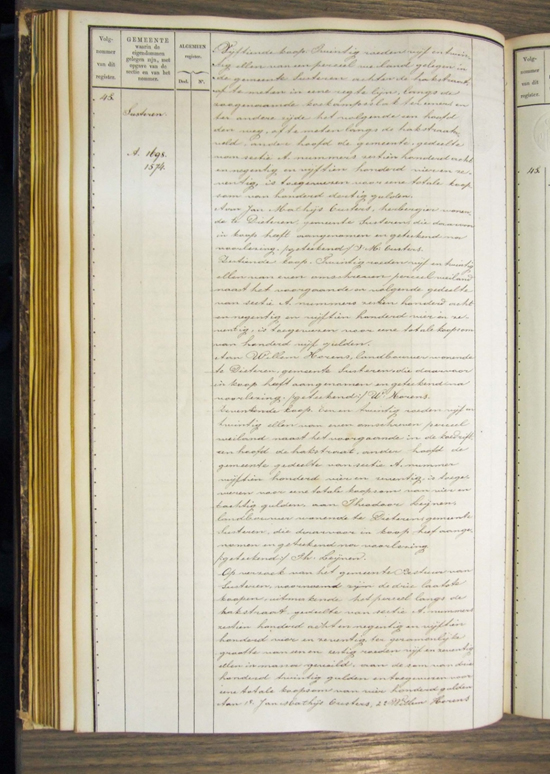 Volg-
nommer
van dit
register.
GEMEENTE
waarin de
eigendommen
gelegen zijn, met
opgave van de
sectie en van het
nommer.
ALGEMEEN
register.
Deel. No.
48.
Susteren
A. 1698.
1574.
Vijftiende koop Twintig roeden vijf en twin-
tig ellen van een perceel weiland gelegen in
de gemeente Susteren achter de hakstraat,
op te meten in eene regte lijn, langs de
ter andere zijde het volgende een hoofd
den weg, op te meten langs de hakstraat,
veld, ander hoofd de gemeente, gedeelte
van sectie A nummers zestien honderd acht
en negentig en vijftien honderd vier en ze-
ventig, is toegewezen voor eene totale koop
som van honderd dertig gulden.
Aan Jan Mathijs Custers, herbergier wonen
de te Dieteren, gemeente Susteren die daarvan
in koop heeft aangenomen en geteekend na
voorlezing, /geteekend:/ J. M. Custers.
Zestiende koop, Twintig roeden vijf en twintig
ellen van even omschreven perceel weiland
naast het voorgaande en volgende gedeelte
van sectie A nummers zestien honderd acht
en negentig en vijftien honderd vier en ze-
ventig, is toegewezen voor eene totale koopsom
van honderd vijf gulden.
Aan Willem Horens, landbouwer wonende
te Dieteren, gemeente Susteren die daarvan
in koop heeft aangenomen en geteekend na
voorlezing, /geteekend:/ W. Horens.
Zeventiende koop een en twintig roeden vijf en
twintig ellen van even omschreven perceel
weiland naast het voorgaande
een hoofd de hakstraat, ander hoofd de
gemeente gedeelte van sectie A nummer
vijftien honderd vier en zeventig, is toege-
wezen voor eene totale koopsom van vier en
tachtig gulden, aan Theodoor Leijnen
landbouwer wonende te Dieteren gemeente
Susteren, die daarvan in koop heeft aange-
nomen en geteekend na voorlezing
/geteekend:/ Th. Leijnen.
Op verzoek van het gemeente Bestuur van
Susteren, voornoemd zijn de drie laatste
koopen, uitmakende het perceel langs de
hakstraat, gedeelte van sectie A nummers
zestien honderd acht en negentig en vijftien
honderd vier en zeventig ter gezamenlijke
grootte van een en zestig roeden vijf en zeventig
ellen in massa geveild, aan de som van drie
honderd twintig gulden en toegewezen voor
eene totale koopsom van vier honderd gulden
Aan 1° Jan Mathijs Custers, 2° Willem Horens
48.